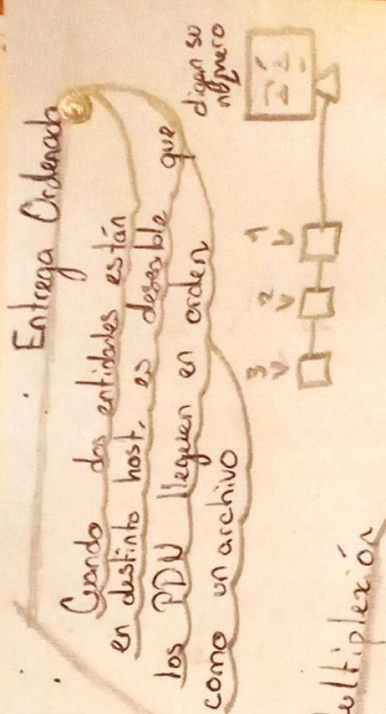 Entrega Ordenada
Cuando dos entidades están
en distinto host, es deseable que
los PDU lleguen en orden
como un archivo
digan su
número
3 2 1
ultiplexión